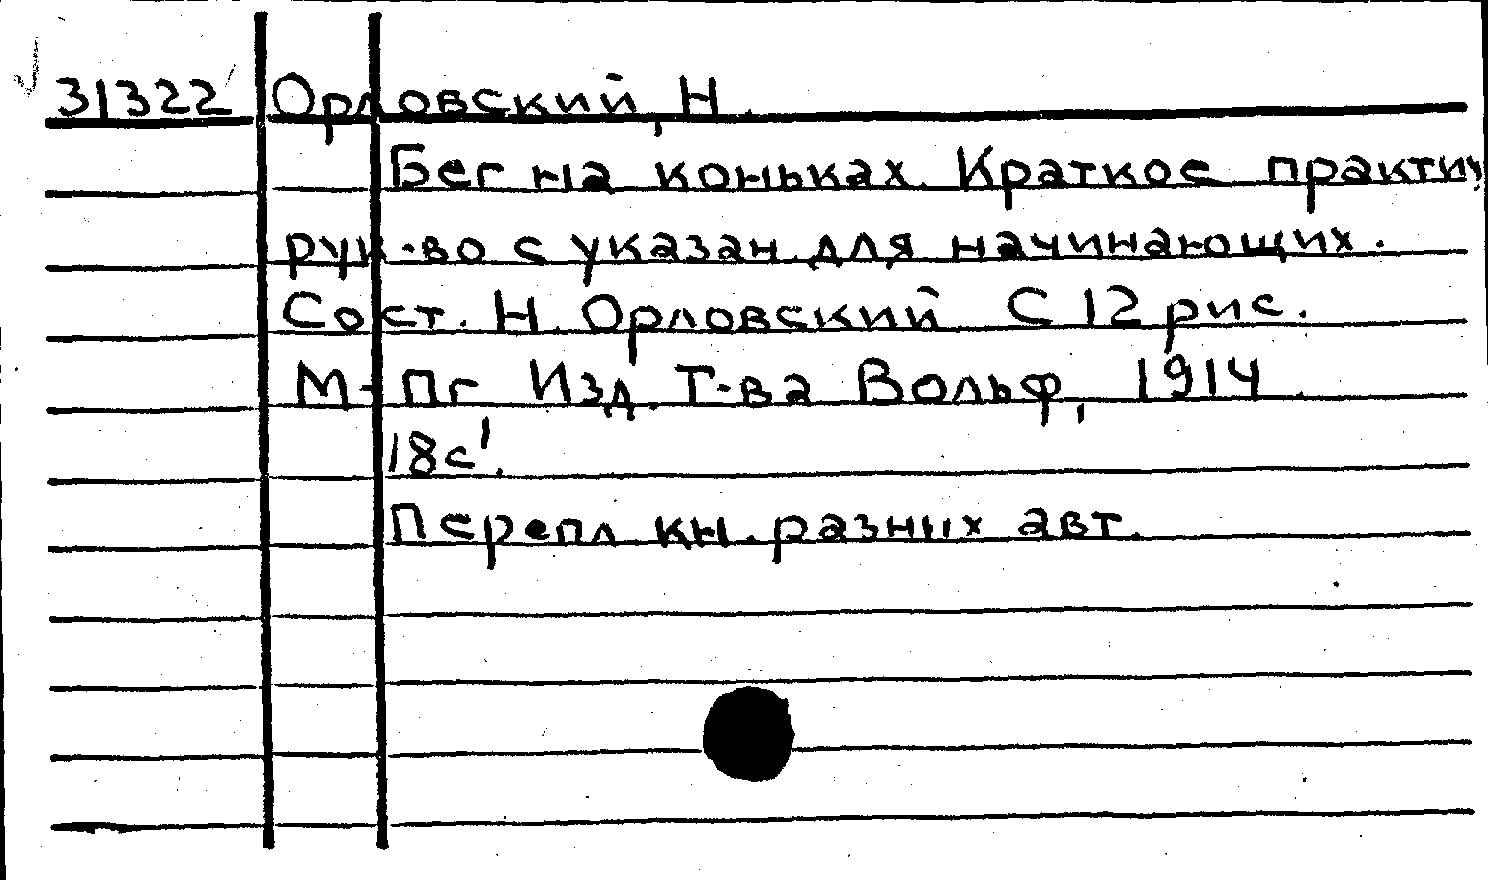 31322 Орловский, Н.
Бег на коньках. Краткое практич.
рук-во с указан. для начинающих.
Сост. Н. Орловский С 12 рис.
М-Пг Изд. Т-ва Вольф, 1914.
18с'.
Перепл. кн. разных авт.